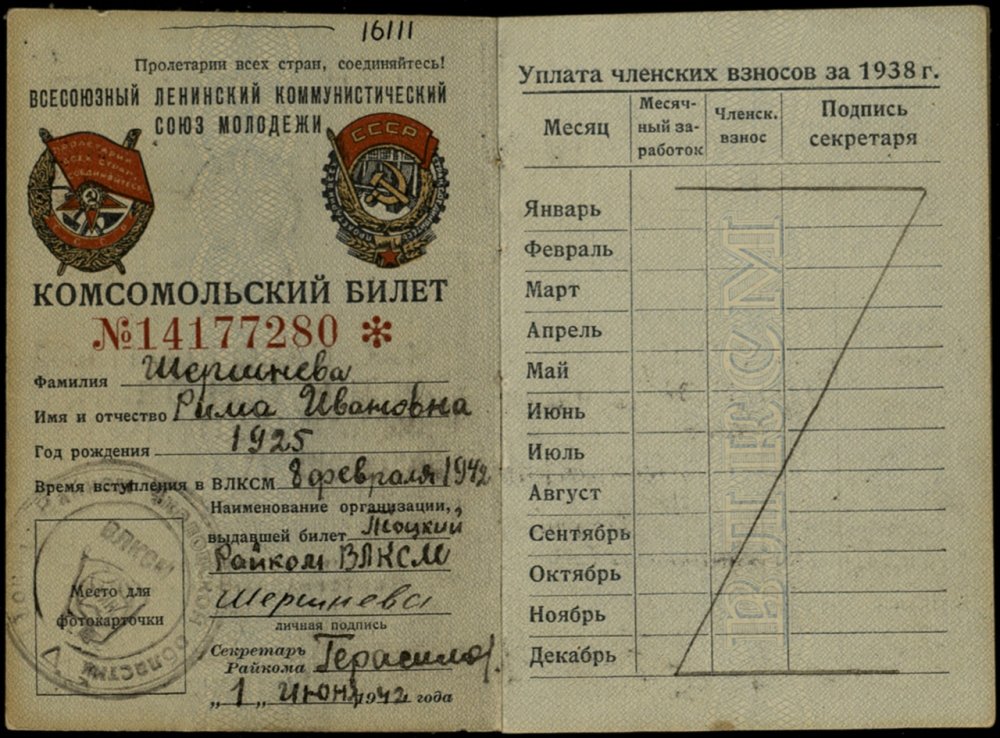 16/11
Пролетарии всех стран, соединяйтесь!
ВСЕСОЮЗНЫЙ ЛЕНИНСКИЙ КОММУНИСТИЧЕСКИЙ
СОЮЗ МОЛОДЕЖИ
ПРОЛЕТАРИИ
ВСЕХ СТРАН
СОЕДИНЯЙТЕСЬ
СССР
СССР
КОМСОМОЛЬСКИЙ БИЛЕТ
№14177280 *
Фамилия Шершнева
Имя и отчество Рима Ивановна
Год рождения 1925
Время вступления в ВЛКСМ 8 февраля 1942
Наименование организации,
выдавшей билет Тоцкий
Райком ВЛКСМ
Место для
фотокарточки
ВЛКСМ
Шершнева
личная подпись
Секретарь
Райкома Герасимов
"1" июня 1942 года
Уплата членских взносов за 1938 г.
Месяц
Месяч-
ный за-
работок
Членск.
взнос
Подпись
секретаря
Январь
Февраль
Март
Апрель
Май
Июнь
Июль
Август
Сентябрь
Октябрь
Ноябрь
Декабрь
ВЛКСМ